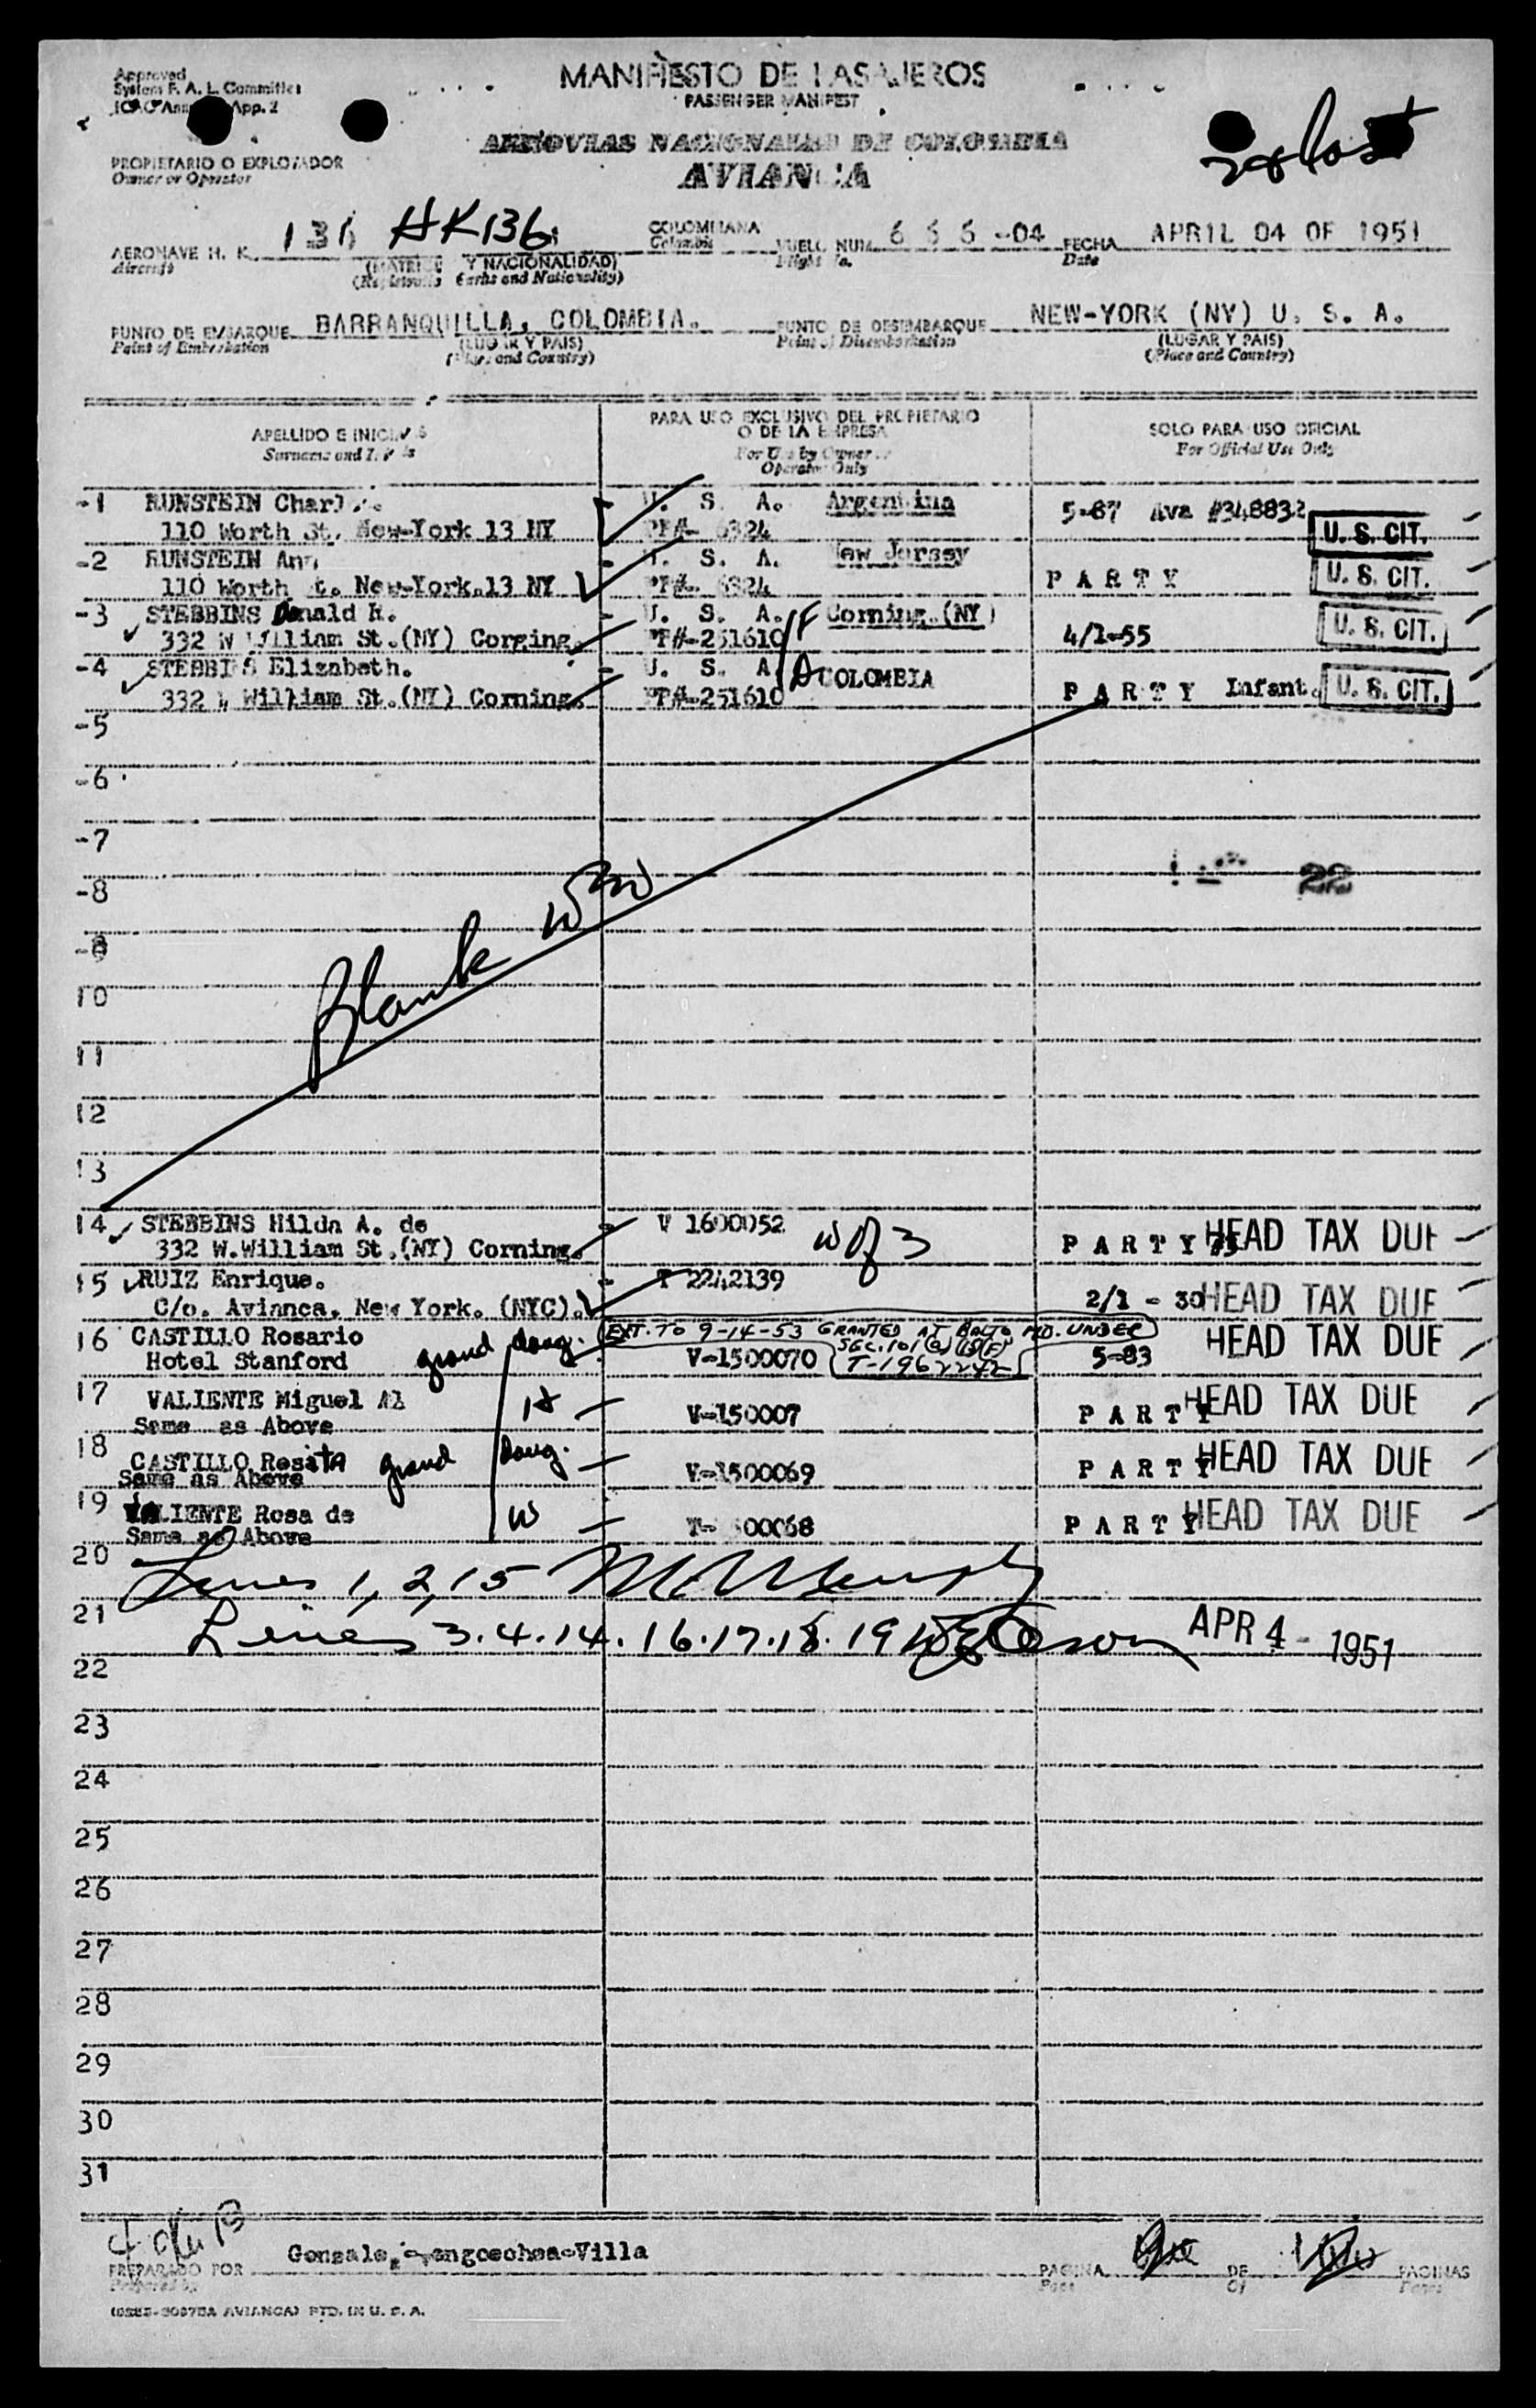 Approved
System F. A. L. Committee
App. 2
MANIFIESTO DE PASAJEROS
PASSENGER MANIFEST
AEROVIAS NACIONALES DE COLOMBIA
AVIANCA
PROPIETARIO O EXPLOTADOR
Owner or Operator
AERONAVE H. K. 136 HK136 COLOMBIANA VUELO NUM. 666-04 FECHA APRIL 04 OF 1951
Aircraft Colombia Flight No. Date
(MATRICU Y NACIONALIDAD)
Marks and Nationality)
PUNTO DE EMBARQUE BARRANQUILLA, COLOMBIA. PUNTO DE DESEMBARQUE NEW-YORK (NY) U. S. A.
Point of Embarkation (LUGAR Y PAIS) Point of Disembarkation (LUGAR Y PAIS)
(Place and Country) (Place and Country)
APELLIDO E INICIALES PARA USO EXCLUSIVO DEL PROPIETARIO SOLO PARA USO OFICIAL
O DE LA EMPRESA
Surname and For Use by Owner or For Official Use Only
Operator Only
-1 RUNSTEIN Charl U. S. A. Argentina 5-87 Ava #348832
110 Worth St. New-York 13 NY PP#- 6324 U. S. CIT.
-2 RUNSTEIN Ann U. S. A. New Jersey
110 Worth St. New-York.13 NY PP#- 6324 PARTY U. S. CIT.
-3 STEBBINS Donald R. U. S. A. F Corning.(NY)
332 W William St.(NY) Corging. PP#-251610 4/1-55 U. S. CIT.
-4 STEBBINS Elizabeth. U. S. A. D COLOMBIA
332 W William St.(NY) Corning. PP#-251610 PARTY Infant. U. S. CIT.
-5
-6
-7
-8
22
-9
10
Blank
11
12
13
14 STEBBINS Hilda A. de V 1600052 W of 3
332 W.William St.(NY) Corning. PARTY HEAD TAX DUE
15 RUIZ Enrique. T 2242139
C/o. Avianca. New York. (NYC). 2/1 - 30 HEAD TAX DUE
16 CASTILLO Rosario grand daug. EXT. TO 9-14-53 GRANTED AT BALTO MD. UNDER
SEC.101(a)(15)(F)
Hotel Stanford V-1500070 T-1962242 5-83 HEAD TAX DUE
17 VALIENTE Miguel Al H
Same as Above V-150007 PARTY HEAD TAX DUE
18 CASTILLO Rosita grand daug.
Same as Above V-1500069 PARTY HEAD TAX DUE
19 VALIENTE Rosa de W
Same as Above 00068 PARTY HEAD TAX DUE
20 Lines 1, 2, 15
21 Lines 3.4.14.16.17.18.19 APR 4 - 1951
22
23
24
25
26
27
28
29
30
31
PREPARADO POR Villa PAGINA DE PAGINAS
Prepared by Page Of Pages
AVIANCA) PTD. IN U. S. A.